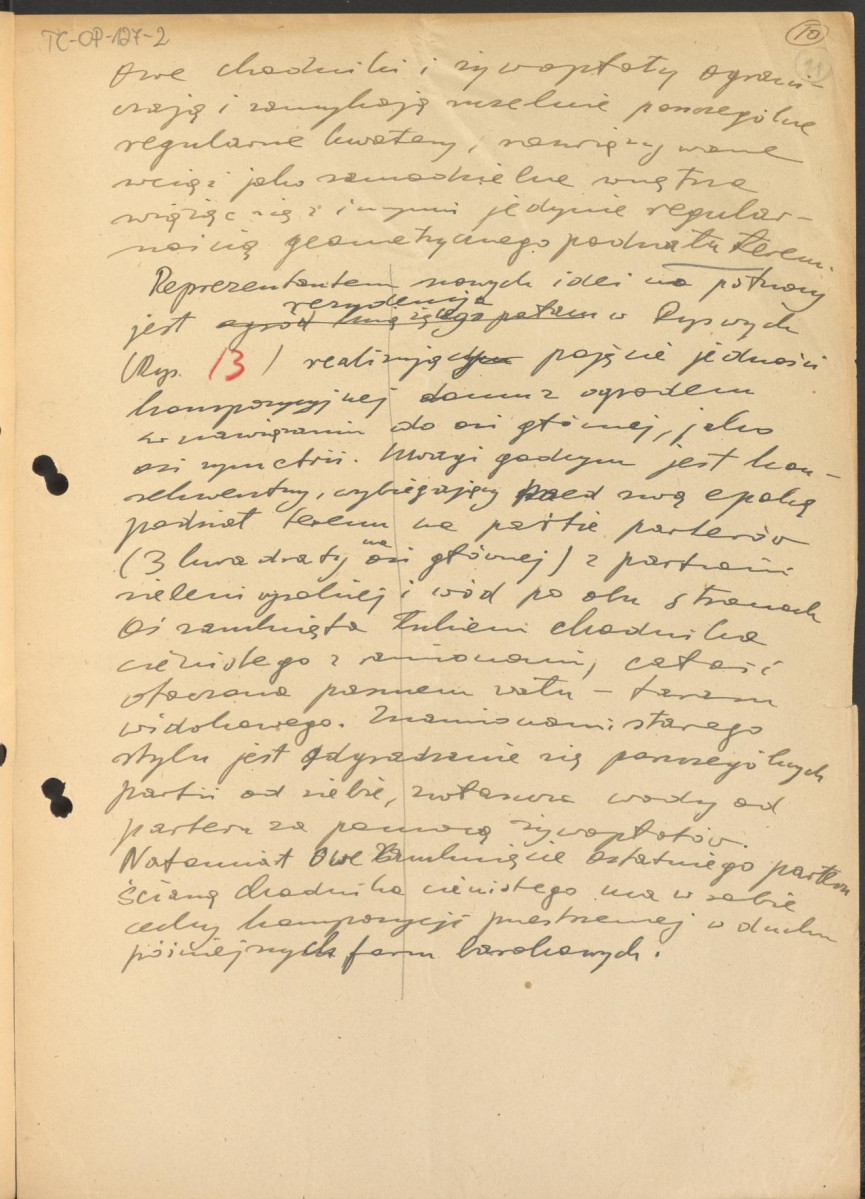 TC-OP-127-2
10
11
Owe chodniki i żywopłoty ograni-
czają i zamykają szczelnie poszczególne
regularne kwatery, rozwiązywane
wciąż jako samodzielne wnętrza
wiążąc się z innymi jedynie regular-
nością geometrycznego podziału terenu.
Reprezentantem nowych idei na północy
rezydencja
jest ogród książęcego pałacu w Ryswych
(Rys. 13) realizująca pojęcie jedności
kompozycyjnej domu z ogrodem
w nawiązaniu do osi głównej, jako
osi symetrii. Uwagi godnym jest kon-
sekwentny, wybiegający przed swą epokę
podział terenu na partie parterów
(3 kwadraty na osi głównej) z partiami
zieleni wysokiej i wód po obu stronach
Oś zamknięta łukiem chodnika
cienistego z ramionami, całość
otoczona pasmem wału – tarasu
widokowego. Znamionami starego
stylu jest odgradzanie się poszczególnych
partii od siebie, zwłaszcza wody od
parteru za pomocą żywopłotów.
Natomiast owe zamknięcie ostatniego parteru
ścianą chodnika cienistego ma w sobie
cechy kompozycji przestrzennej w duchu
późniejszych form barokowych.